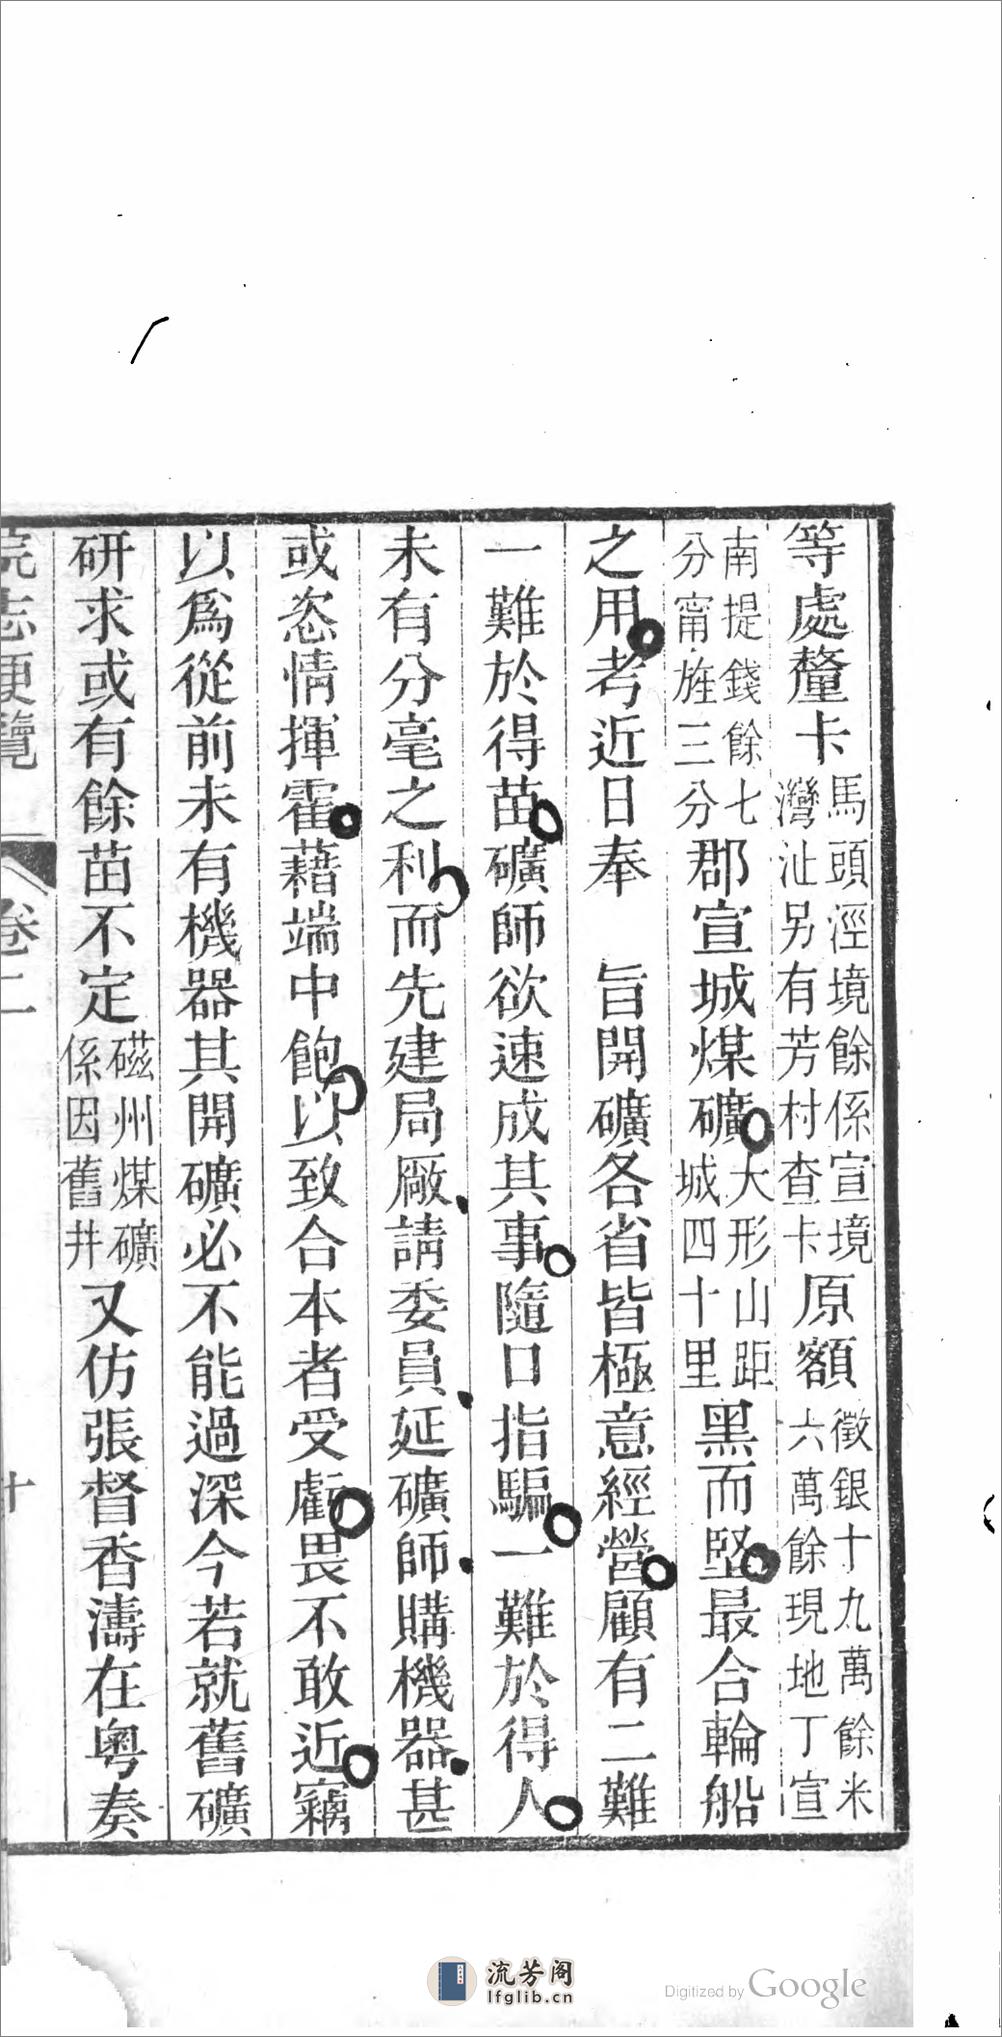 等處釐卡馬頭涇境餘係宣境灣沚另有芳村查卡原額徵銀十九萬餘米六萬餘現地丁宣
南提錢餘七分甯旌三分郡宣城煤礦大形山距城四十里黑而堅最合輪船
之用考近日奉　旨開礦各省皆極意經營顧有二難
一難於得苗礦師欲速成其事隨口指騙一難於得人
未有分毫之利而先建局廠請委員延礦師購機器甚
或恣情揮霍藉端中飽以致合本者受虧畏不敢近竊
以爲從前未有機器其開礦必不能過深今若就舊礦
研求或有餘苗不定磁州煤礦係因舊井又仿張督香濤在粵奏
皖志便覽　卷二　十
流芳阁
lfglib.cn
Digitized by Google